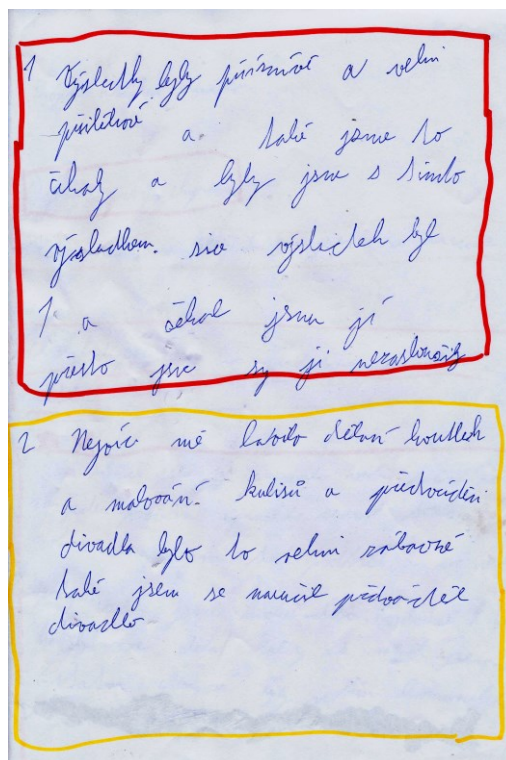 1 Výsledky byly příznivé a velmi
a. také jsme to
čekaly a byly jsme s tímto
výsladkem. sice výsledek byl
1 a čekal jsem jí
přesto jsme sy ji nezasloužily
2 Nejvíc mě bavilo dělaní loutkek
a malování. kulisů a předvádění
divadla bylo to velmi zábavné
také jsem se naučil předvádět
divadlo